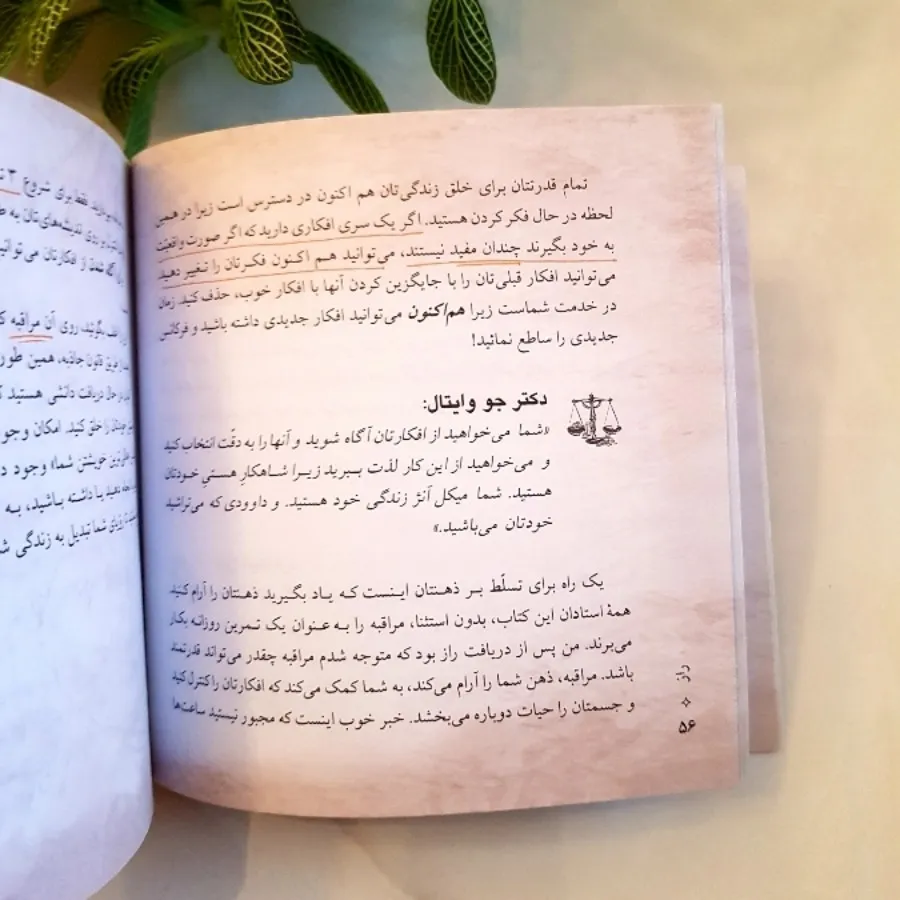 تمام قدرتتان برای خلق زندگی‌تان هم اکنون در دسترس است زیرا در همین
لحظه در حال فکر کردن هستید. اگر یک سری افکاری دارید که اگر صورت واقعیت
به خود بگیرند چندان مفید نیستند، می‌توانید هم اکنون فکرتان را تغییر دهید.
می‌توانید افکار قبلی‌تان را با جایگزین کردن آنها با افکار خوب، حذف کنید. زمان
در خدمت شماست زیرا هم‌اکنون می‌توانید افکار جدیدی داشته باشید و فرکانس
جدیدی را ساطع نمائید!
دکتر جو وایتال:
«شما می‌خواهید از افکارتان آگاه شوید و آنها را به دقّت انتخاب کنید
و می‌خواهید از این کار لذت ببرید زیرا شاهکارِ هستیِ خودتان
هستید. شما میکل آنژ زندگی خود هستید. و داوودی که می‌تراشید
خودتان می‌باشید.»
یک راه برای تسلّط بر ذهنتان اینست که یاد بگیرید ذهنتان را آرام کنید.
همهٔ استادان این کتاب، بدون استثنا، مراقبه را به عنوان یک تمرین روزانه بکار
می‌برند. من پس از دریافت راز بود که متوجه شدم مراقبه چقدر می‌تواند قدرتمند
باشد. مراقبه، ذهن شما را آرام می‌کند، به شما کمک می‌کند که افکارتان را کنترل کنید
و جسمتان را حیات دوباره می‌بخشد. خبر خوب اینست که مجبور نیستید ساعت‌ها
راز
۵۶
فقط برای شروع ۳
روی اندیشه‌های‌تان به
از افکارتان می‌توانید
بگوئید، روی آن مراقبه
قانون جاذبه، همین طور
در حال دریافت دانشی هستید
را خلق کنید. امکان وجود
خویشتن شما» وجود
داشته باشید، به
رویای شما تبدیل به زندگی